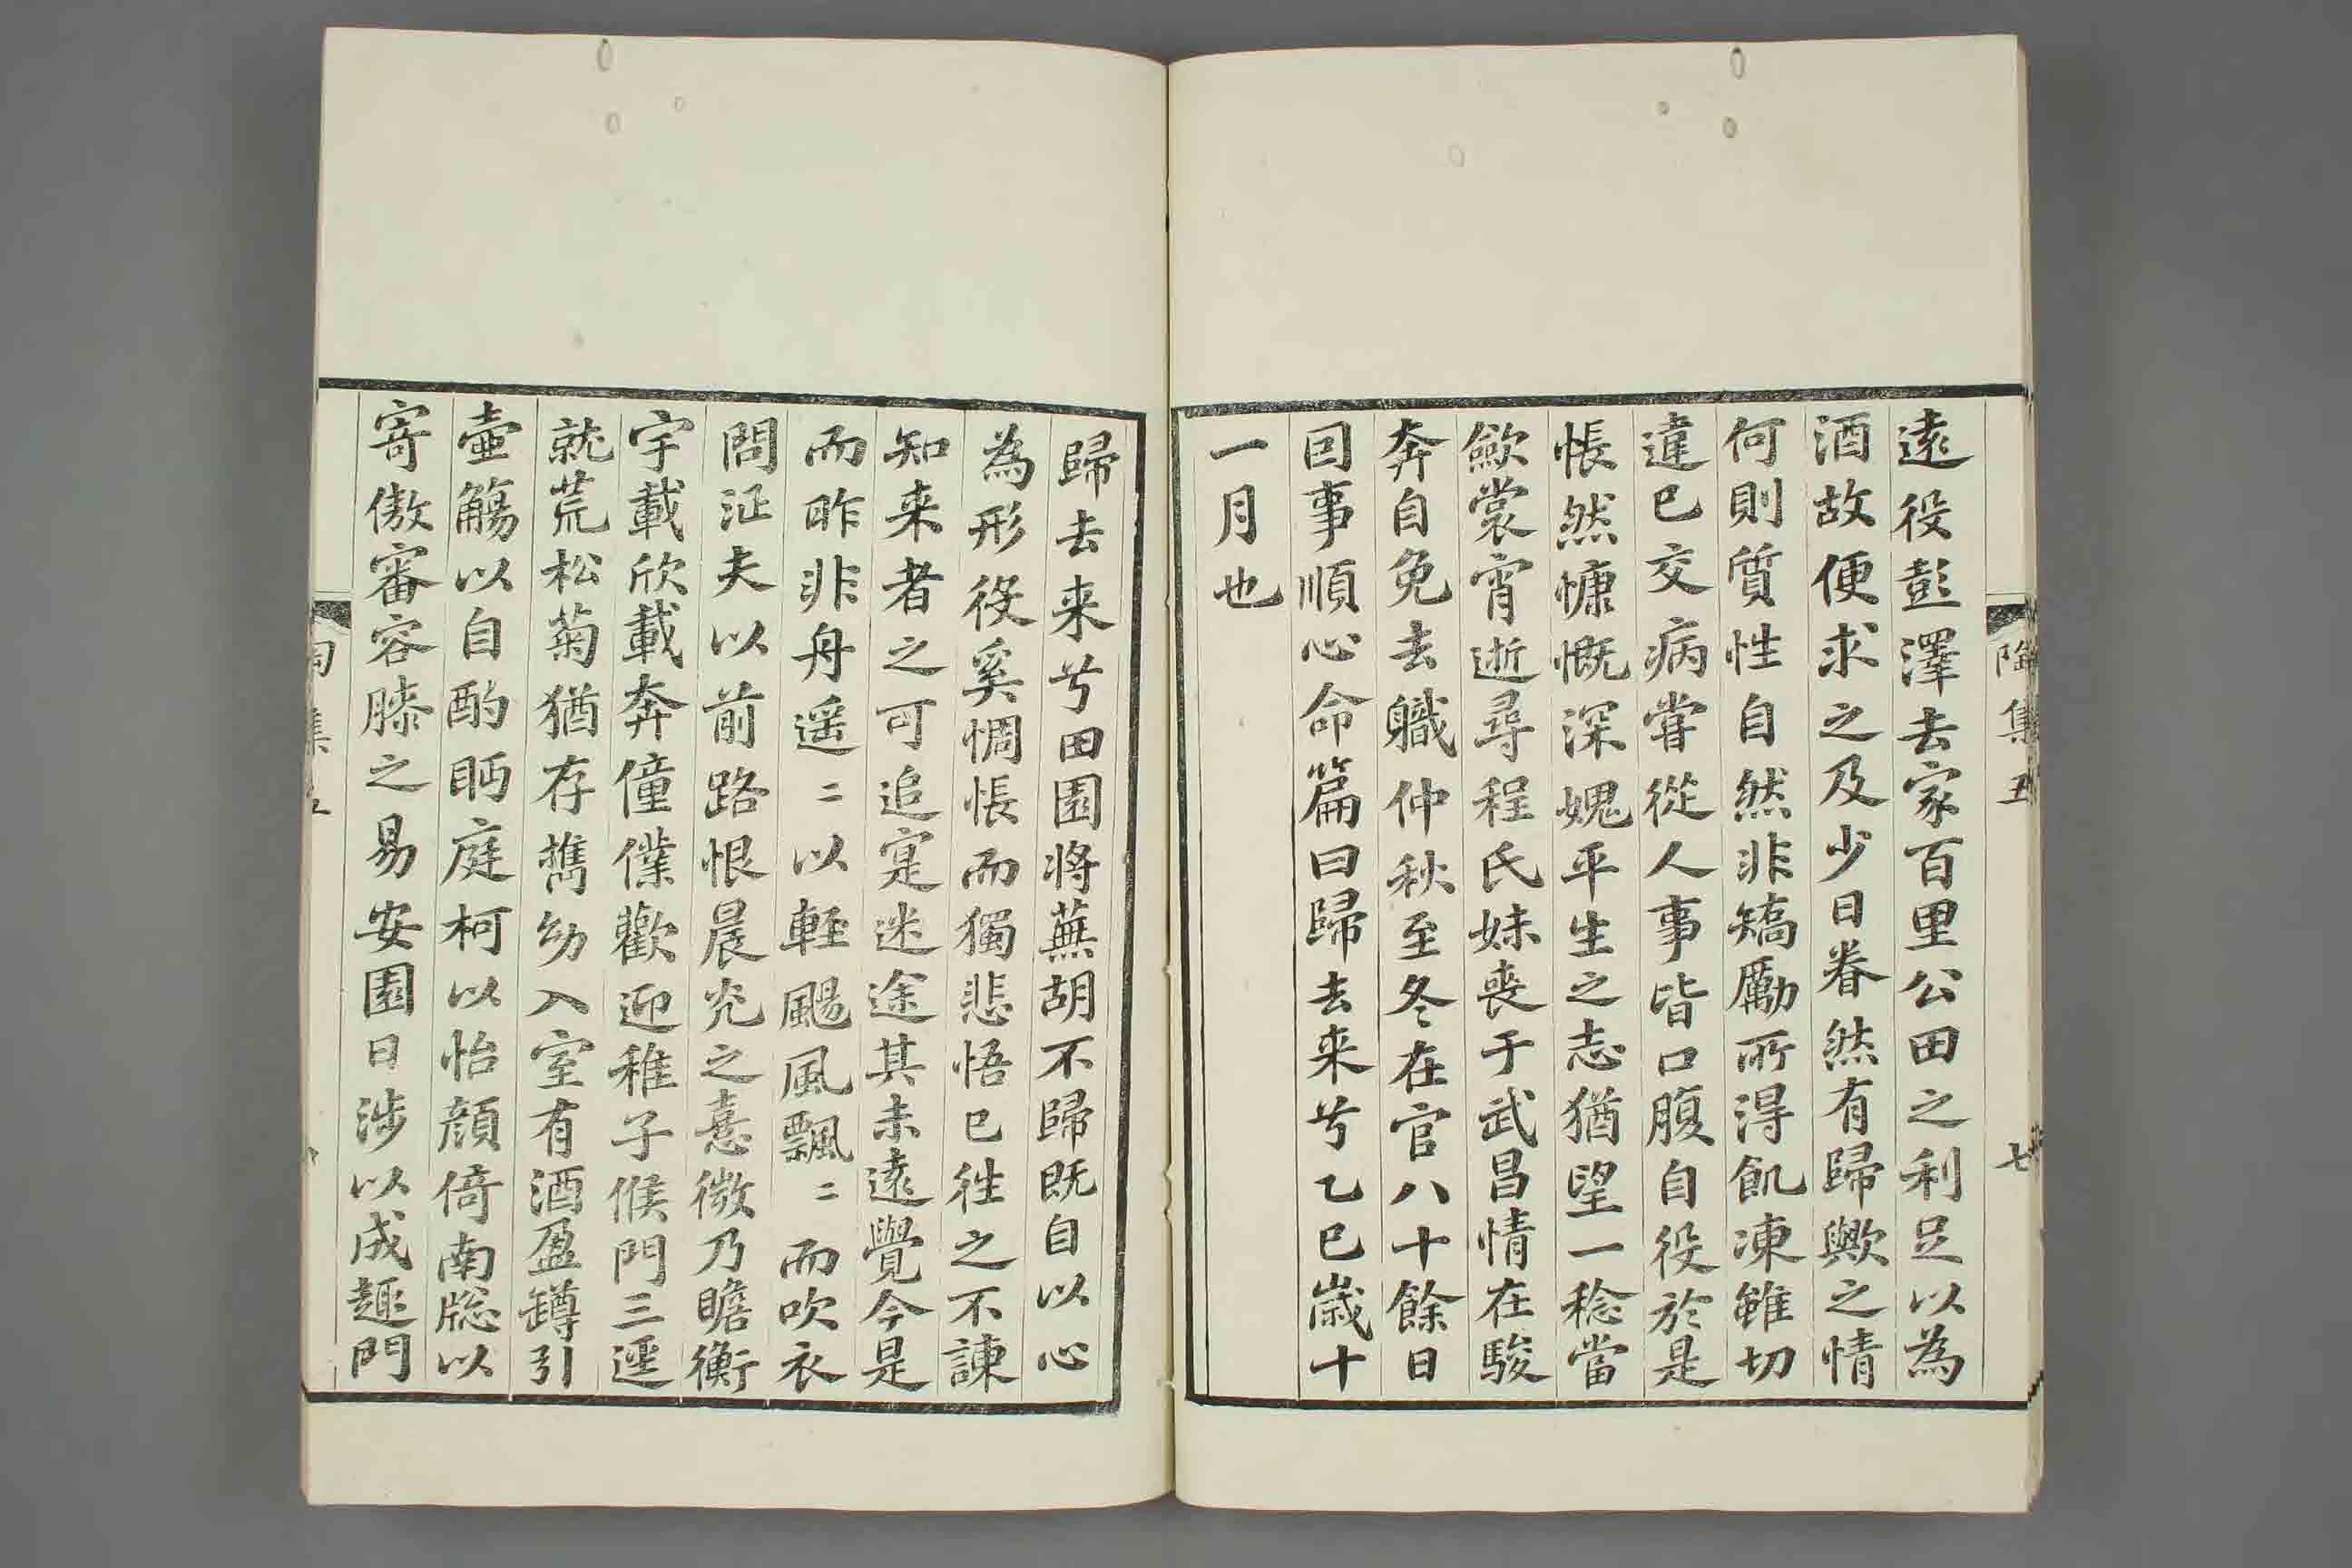 陶集五
七
遠役彭澤去家百里公田之利足以為
酒故便求之及少日眷然有歸歟之情
何則質性自然非矯勵所得飢凍雖切
違已交病甞從人事皆口腹自役於是
悵然慷慨深媿平生之志猶望一稔當
斂裳宵逝尋程氏妹丧于武昌情在駿
奔自免去軄仲秋至冬在官八十餘日
因事順心命篇曰歸去来兮乙巳歲十
一月也
歸去来兮田園將蕪胡不歸既自以心
為形役奚惆悵而獨悲悟已往之不諫
知来者之可追寔迷途其未遠覺今是
而昨非舟遥〻以輕颺風飄〻而吹衣
問征夫以前路恨晨光之憙微乃瞻衡
宇載欣載奔僮僕歡迎稚子候門三逕
就荒松菊猶存攜幼入室有酒盈罇引
壷觴以自酌眄庭柯以怡顔倚南牎以
寄傲審容膝之易安園日涉以成趣門